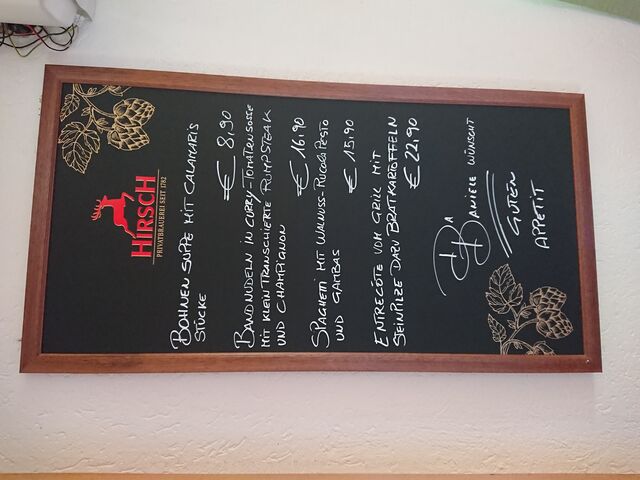 HIRSCH
PRIVATBRAUEREI SEIT 1782
BOHNEN SUPPE MIT CALAMARIS
STÜCKE
€ 8,90
BANDNUDELN IN CURRY-TOMATENSOSSE
MIT KLEIN TRANSCHIERTE RUMPSTEAK
UND CHAMPIGNON
€ 16,90
SPAGHETTI MIT WALNUSS-RUCOLAPESTO
UND GAMBAS
€ 15,90
ENTRECÔTE VOM GRILL MIT
STEINPILZE DAZU BRATKARTOFFELN
€ 22,90
DA
DANIELE WÜNSCHT
GUTEN
APPETIT